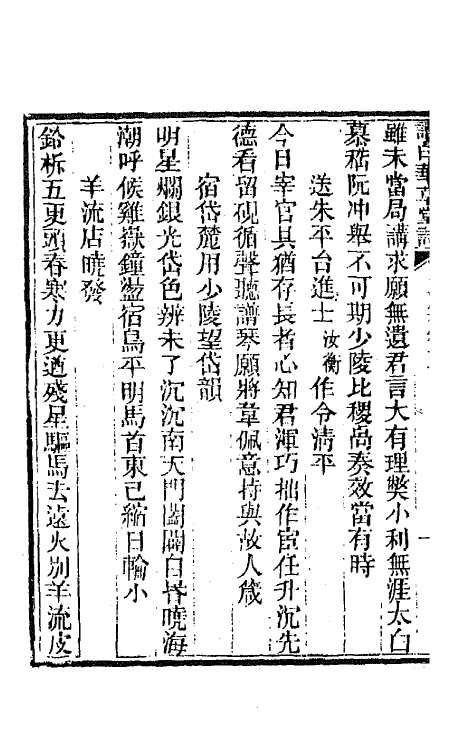 雖未當局講求願無遺君言大有理獘小利無涯太白
慕嵇阮冲舉不可期少陵比稷卨奏效當有時
送朱平台進士汝衡作令清平
今日宰官具猶存長者心知君渾巧拙作宦任升沉先
德看留硯循聲聽譜琴願將韋佩意持與故人箴
宿岱麓用少陵望岱韻
明星爛銀光岱色辨未了沉沉南天門闔闢自昏曉海
潮呼候雞嶽鐘盪宿鳥平明馬首東已縮日輪小
羊流店曉發
鈴柝五更頭春寒力更遒殘星驅馬去遠火別羊流皮